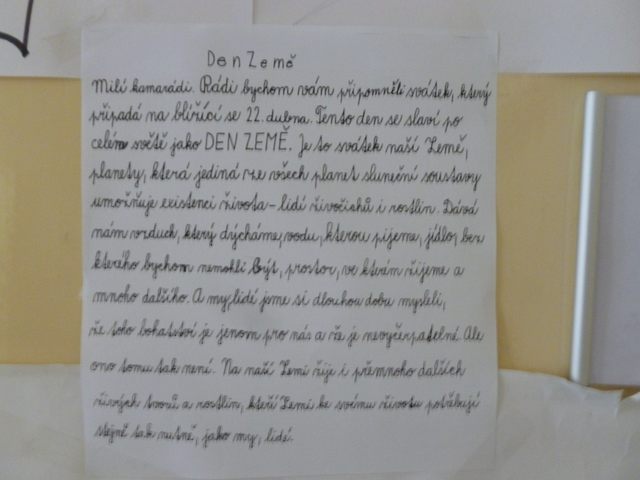 Den Země
Milí kamarádi. Rádi bychom vám připomněli svátek, který
připadá na blížící se 22. dubna. Tento den se slaví po
celém světě jako DEN ZEMĚ. Je to svátek naší Země,
planety, která jediná ze všech planet sluneční soustavy
umožňuje existenci života - lidí živočichů i rostlin. Dává
nám vzduch, který dýcháme, vodu, kterou pijeme, jídlo, bez
kterého bychom nemohli být, prostor, ve kterém žijeme a
mnoho dalšího. A my, lidé jsme si dlouhou dobu mysleli,
že toho bohatství je jenom pro nás a že je nevyčerpatelné. Ale
ono tomu tak není. Na naší Zemi žije i přemnoho dalších
živých tvorů a rostlin, kteří Zemi ke svému životu potřebují
stejně tak nutně, jako my, lidé.